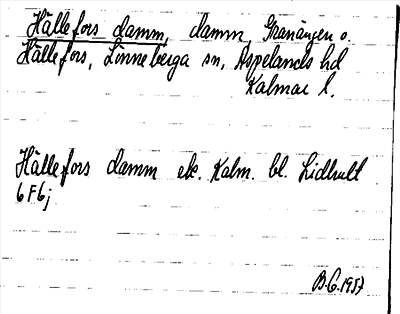 Hällefors damm, damm, Granängen o.
Hällefors, Linneberga sn, Aspelands hd
Kalmar l.
Hällefors damm ek. Kalm. bl. Lidhult
6F6j
B.G. 1957